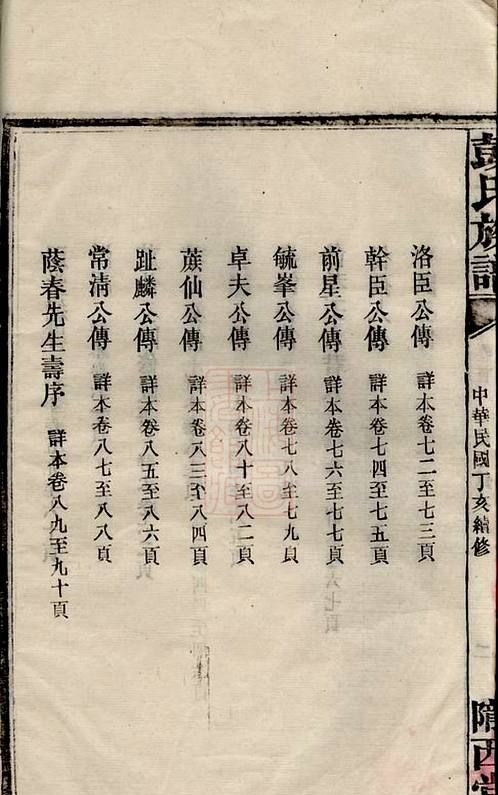 彭氏族譜
中華民國丁亥續修
二
隴西堂
洛臣公傳 詳本卷七二至七三頁
幹臣公傳 詳本卷七四至七五頁
前星公傳 詳本卷七六至七七頁
毓峯公傳 詳本卷七八至七九頁
卓夫公傳 詳本卷八十至八二頁
蔟仙公傳 詳本卷八三至八四頁
趾麟公傳 詳本卷八五至八六頁
常清公傳 詳本卷八七至八八頁
蔭春先生壽序 詳本卷八九至九十頁